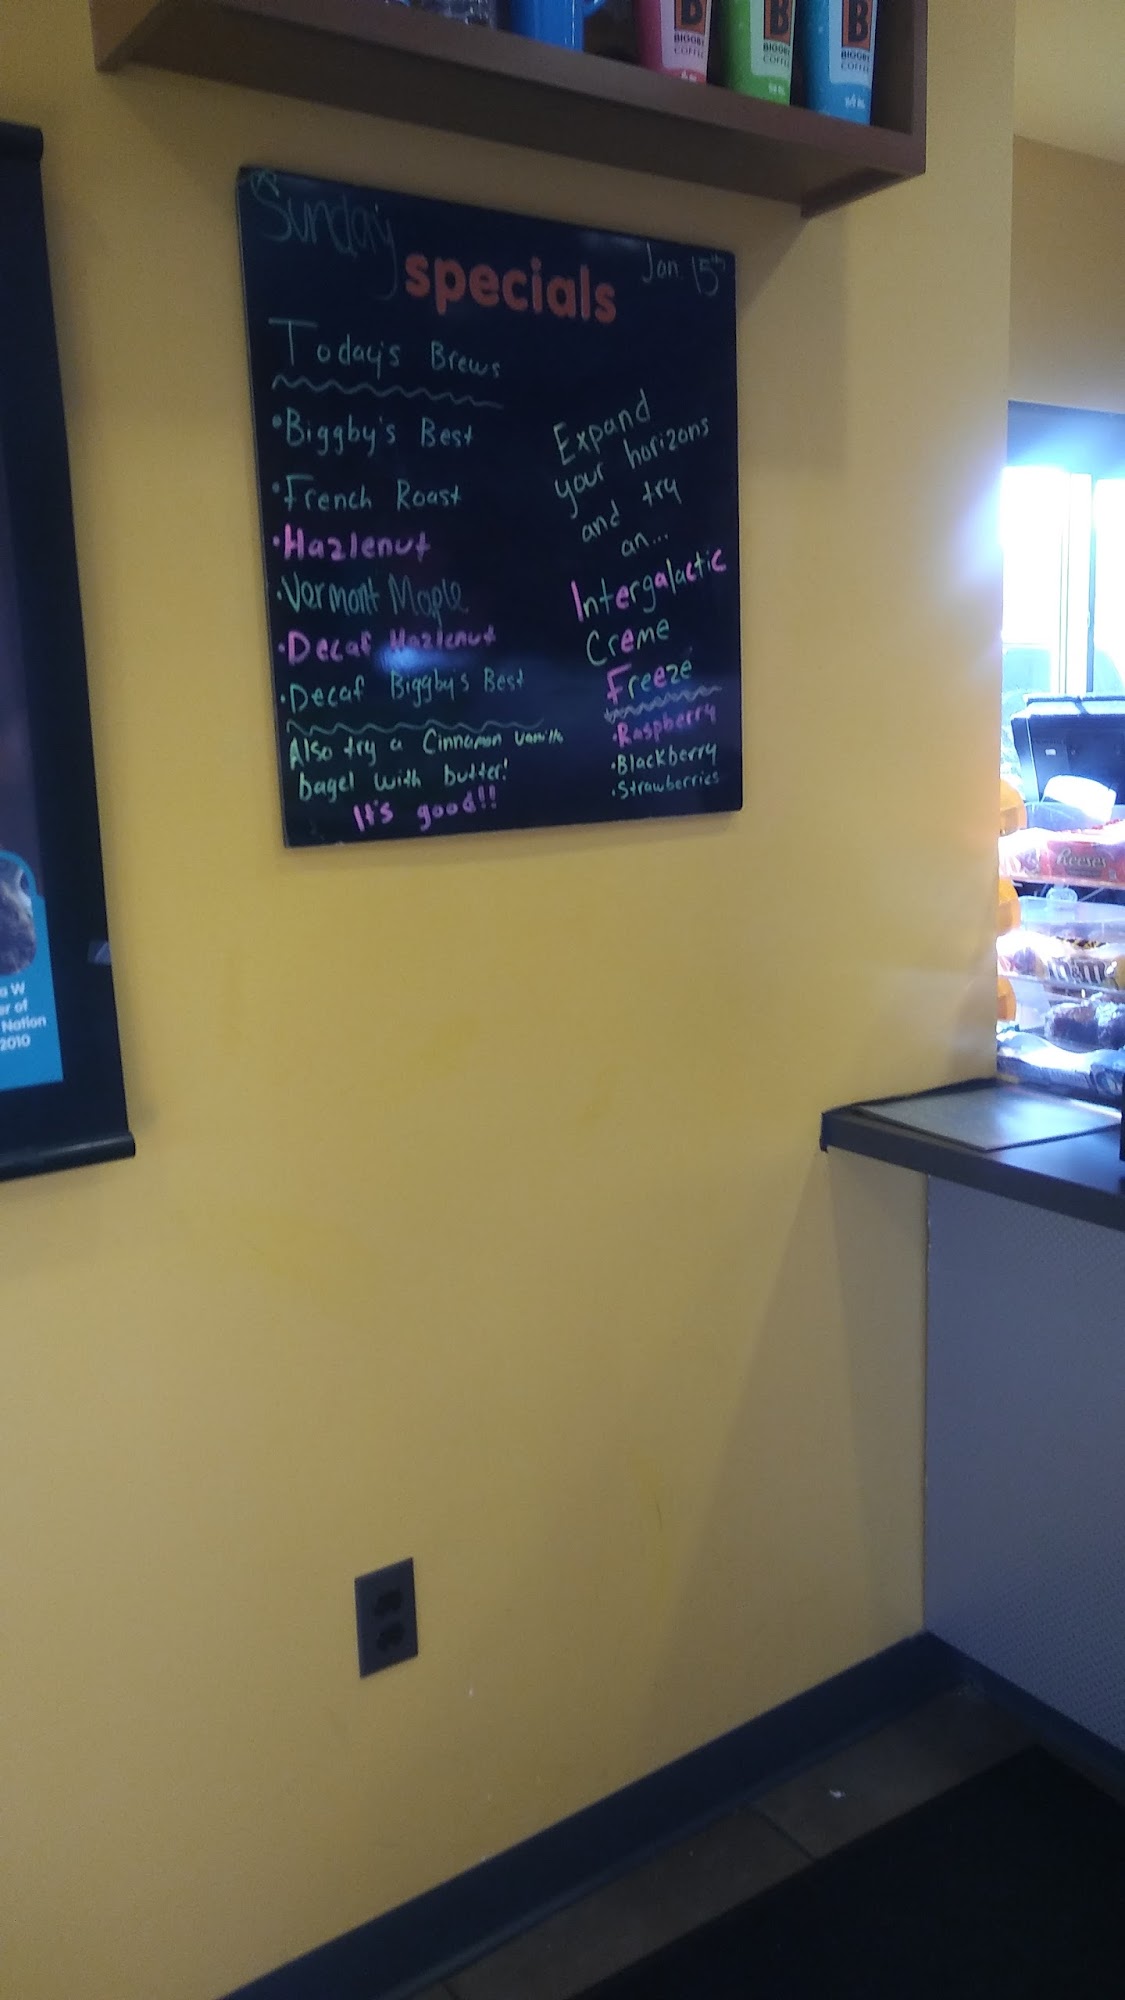 B
BIGGBY
COFFEE
B
BIGGBY
COFFEE
B
BIGGBY
COFFEE
Sunday
specials
Jan. 15th
Today's Brews
•Biggby's Best
•French Roast
•Hazlenut
•Vermont Maple
•Decaf Hazlenut
•Decaf Biggby's Best
Also try a Cinnamon vanilla
bagel with butter!
It's good!!
Expand
your horizons
and try
an...
Intergalactic
Creme
Freeze
•Raspberry
•Blackberry
•Strawberries
a W
er of
Nation
2010
Reese's
m&m's